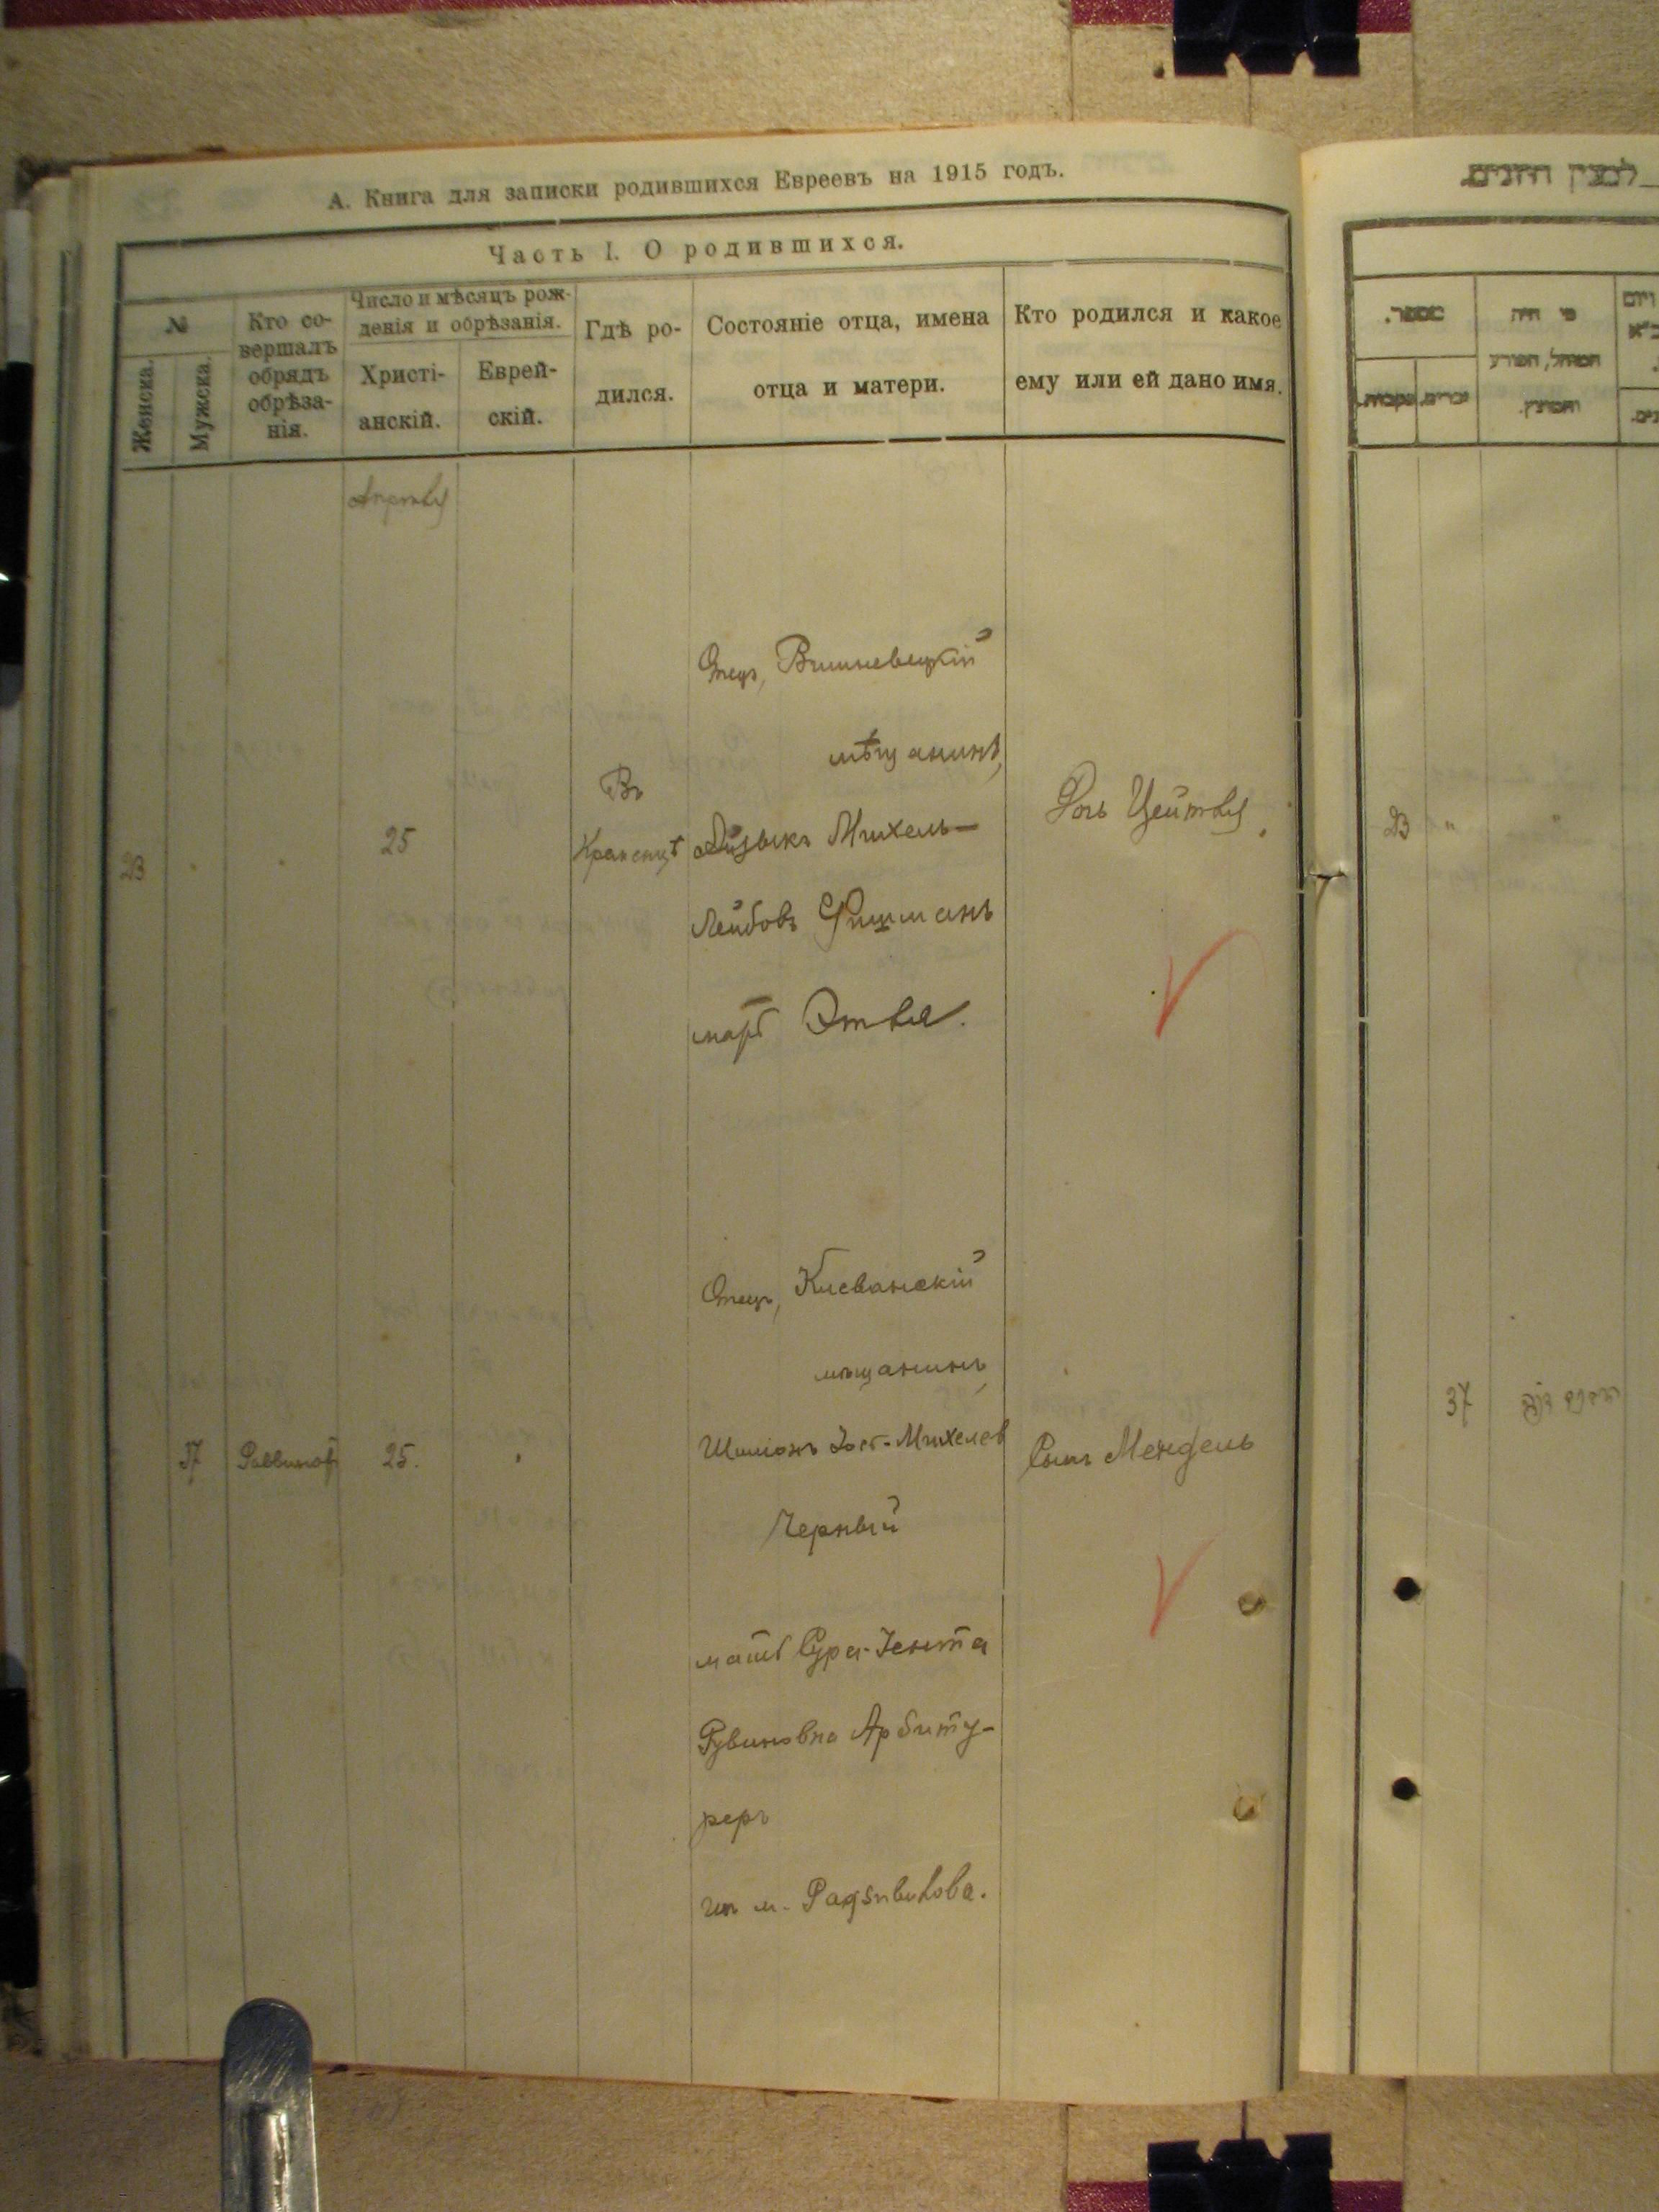 А. Книга для записки родившихся Евреевъ на 1915 годъ.
Часть I. О родившихся.
№
Женска.
Мужска.
Кто со-
вершалъ
обрядъ
обрѣза-
нія.
Число и мѣсяцъ рож-
денія и обрѣзанія.
Христі-
анскій.
Еврей-
скій.
Гдѣ ро-
дился.
Состояніе отца, имена
отца и матери.
Кто родился и какое
ему или ей дано имя.
Апрѣля
23
25
Въ
Отецъ, Вишневецкій
мѣщанинъ,
Айзыкъ Михель-
Лейбовъ Фишманъ
мать Этля.
Дочь Цейтля.
37
25.
Отецъ, Клеванскій
мѣщанинъ,
Шимонъ Іось-Михелев
Черный
мать Сура-Іента
Рувиновна Арбиту-
реръ
м. Радзивилова.
Сынъ Мендель
מספר.
זכרים.
נקבות.
מי היה
המוהל, הפורע
והמוצץ.
23 "
"
37